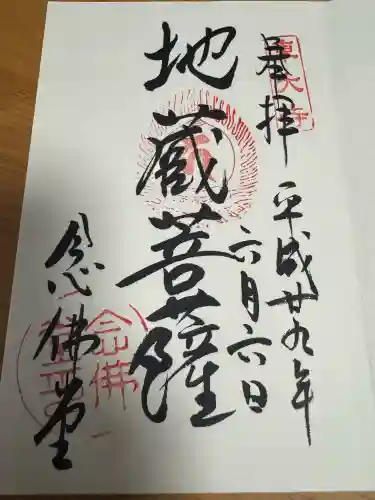 奉拝
平成廿九年
六月六日
地蔵菩薩
念佛堂
東大寺
念佛